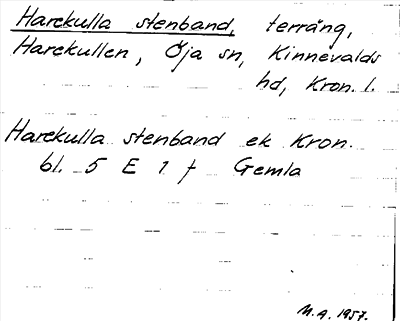 Harekulla stenband, terräng,
Harekullen, Öja sn, Kinnevalds
hd, Kron. l.
Harekulla stenband ek Kron.
bl. 5 E 1 f Gemla
M.A. 1957.